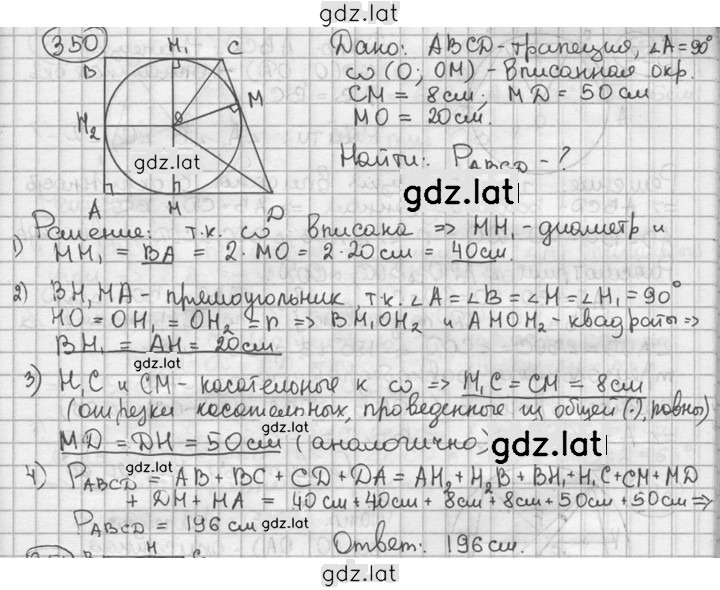 gdz.lat
350
H₁ C
B
M
H₂
O
gdz.lat
A H D
Дано: ABCD-трапеция, ∠A=90°
ω (O; OM) - вписанная окр.
CM = 8см; MD = 50см
MO = 20см.
Найти: P_ABCD - ?
gdz.lat
Решение: т.к. ω вписана => HH₁ - диаметр и
1) HH₁ = BA = 2·MO = 2·20см = 40см.
2) BH₁HA - прямоугольник, т.к. ∠A = ∠B = ∠H = ∠H₁ = 90°
HO = OH₁ = OH₂ = r => BH₁OH₂ и AHOH₂ - квадраты =>
BH₁ = AH = 20см
gdz.lat
3) H₁C и CM - касательные к ω => H₁C = CM = 8см
(отрезки касательных, проведенные из общей (·), равны)
MD = DH = 50см (аналогично)
gdz.lat
gdz.lat
4) P_ABCD = AB + BC + CD + DA = AH₂ + H₂B + BH₁ + H₁C + CM + MD
+ DH + HA = 40см + 40см + 8см + 8см + 50см + 50см =>
P_ABCD = 196 см
gdz.lat
Ответ: 196см.
gdz.lat